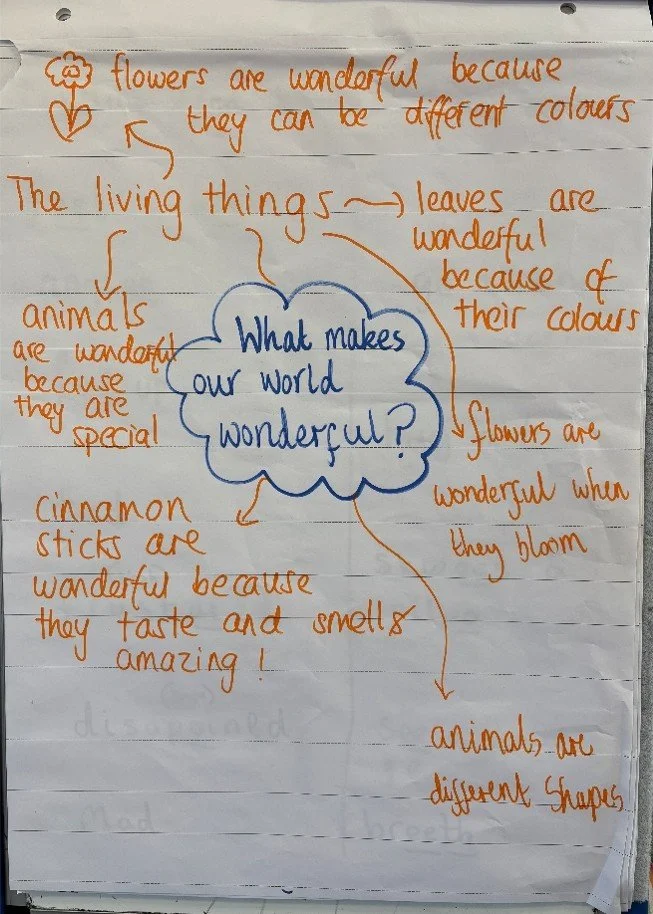 flowers are wonderful because
they can be different colours
The living things
leaves are
wonderful
because of
their colours
animals
are wonderful
because
they are
special
What makes
our world
wonderful?
flowers are
wonderful when
they bloom
cinnamon
sticks are
wonderful because
they taste and smell
amazing!
animals are
different shapes